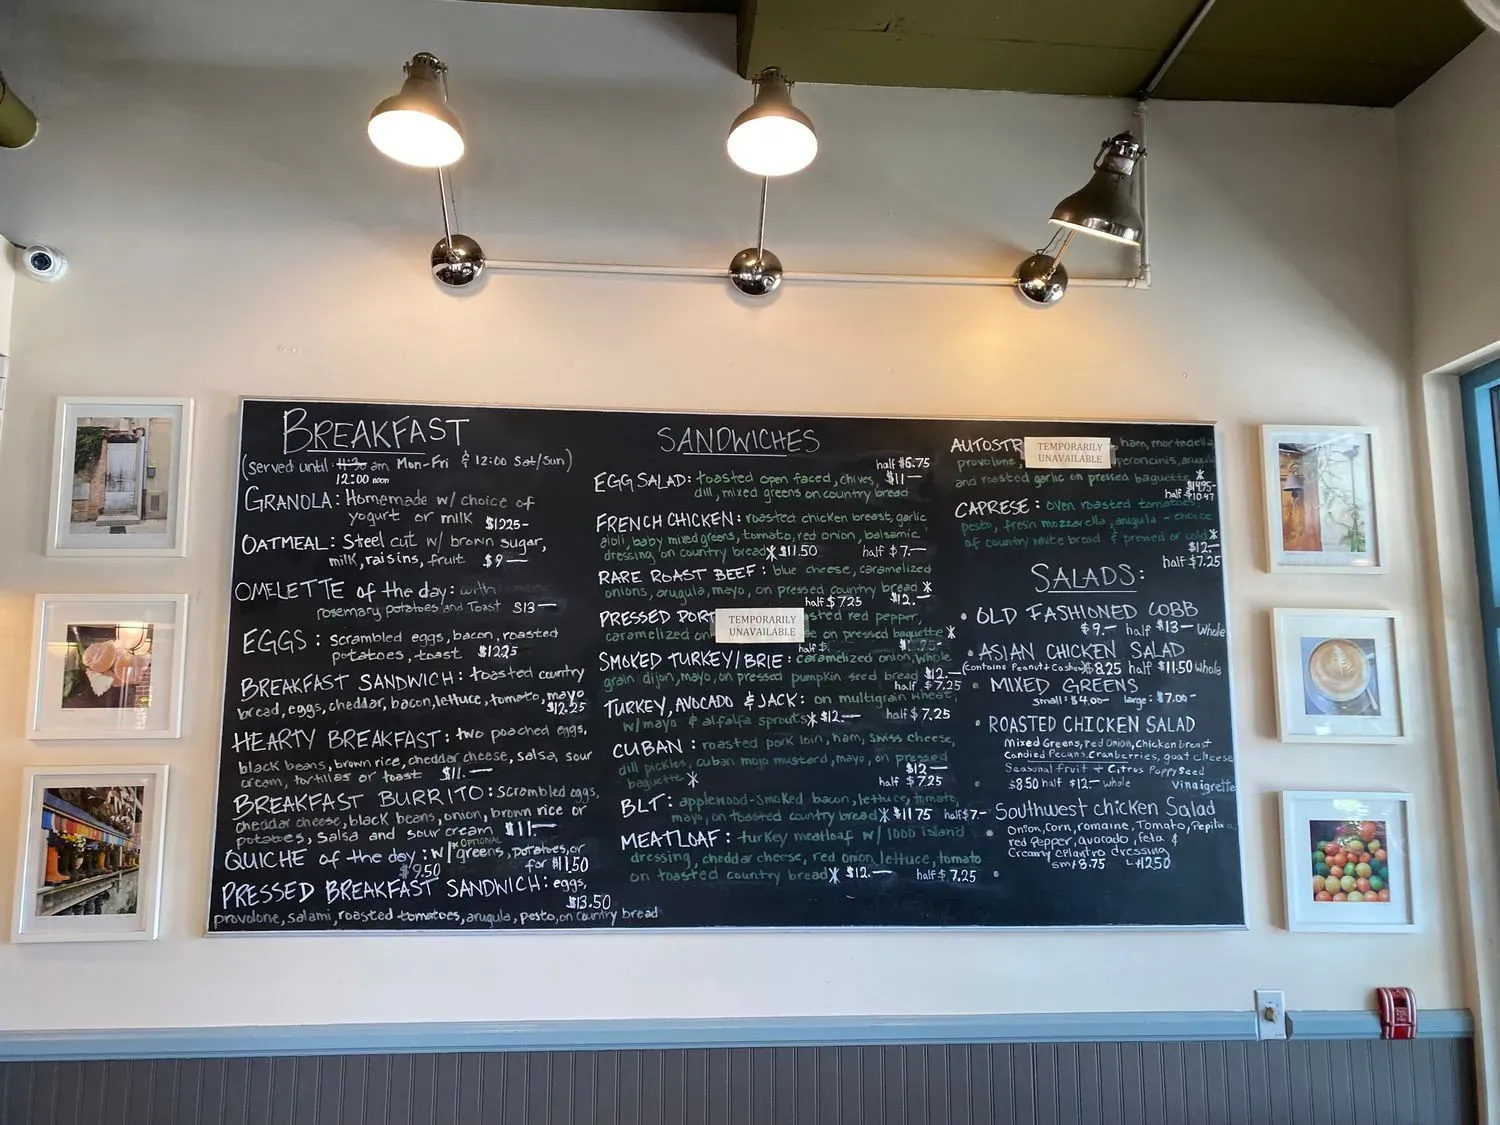 BREAKFAST
(served until 11:30 am Mon-Fri & 12:00 Sat/Sun)
12:00 noon
GRANOLA: Homemade w/ choice of
yogurt or milk $12.25-
OATMEAL: Steel cut w/ brown sugar,
milk, raisins, fruit $9—
OMELETTE of the day: with
rosemary potatoes and Toast $13—
EGGS: scrambled eggs, bacon, roasted
potatoes, toast $12.25
BREAKFAST SANDWICH: toasted country
bread, eggs, cheddar, bacon, lettuce, tomato, mayo
$12.25
HEARTY BREAKFAST: two poached eggs,
black beans, brown rice, cheddar cheese, salsa, sour
cream, tortillas or toast $11.—
BREAKFAST BURRITO: scrambled eggs,
cheddar cheese, black beans, onion, brown rice or
potatoes, salsa and sour cream $11—
QUICHE of the day: w/ OPTIONAL greens, potatoes, or
$9.50 for $11.50
PRESSED BREAKFAST SANDWICH: eggs,
$13.50
provolone, salami, roasted tomatoes, arugula, pesto, on country bread
SANDWICHES
half $6.75
EGG SALAD: toasted open faced, chives, $11—
dill, mixed greens on country bread
FRENCH CHICKEN: roasted chicken breast, garlic
aioli, baby mixed greens, tomato, red onion, balsamic
dressing on country bread * $11.50 half $7.—
RARE ROAST BEEF: blue cheese, caramelized
onions, arugula, mayo, on pressed country bread *
half $7.25 $12.—
PRESSED PORT TEMPORARILY UNAVAILABLE red pepper,
caramelized on on pressed baguette *
half $
SMOKED TURKEY/BRIE: caramelized onion, whole
grain dijon, mayo, on pressed pumpkin seed bread $12.—
half $7.25
TURKEY, AVOCADO & JACK: on multigrain wheat,
w/ mayo & alfalfa sprouts * $12.— half $7.25
CUBAN: roasted pork loin, ham, swiss cheese,
dill pickles, cuban mojo mustard, mayo, on pressed
baguette * $12—
half $7.25
BLT: applewood-smoked bacon, lettuce, tomato,
mayo, on toasted country bread * $11.75 half $7-
MEATLOAF: turkey meatloaf w/ 1000 island
dressing, cheddar cheese, red onion, lettuce, tomato
on toasted country bread * $12.— half $7.25
AUTOSTR TEMPORARILY UNAVAILABLE ham, mortadella
provolone, peperoncinis, arugula
and roasted garlic on pressed baguette *
$14.95-
half $10.47
CAPRESE: oven roasted tomatoes,
pesto, fresh mozzarella, arugula - choice
of country white bread & pressed or cold *
$12.—
half $7.25
SALADS:
• OLD FASHIONED COBB
$9.— half $13— Whole
• ASIAN CHICKEN SALAD
(contains Peanut + Cashew) $8.25 half $11.50 whole
• MIXED GREENS
small: $4.00— large: $7.00—
• ROASTED CHICKEN SALAD
Mixed Greens, red Onion, Chicken breast
Candied Pecans, Cranberries, goat cheese
Seasonal fruit + Citrus Poppy Seed
• $8.50 half $12.— whole Vinaigrette
• Southwest chicken Salad
Onion, Corn, romaine, Tomato, Pepita,
red Pepper, avocado, feta &
Creamy Cilantro dressing
sm $8.75 L $12.50
•